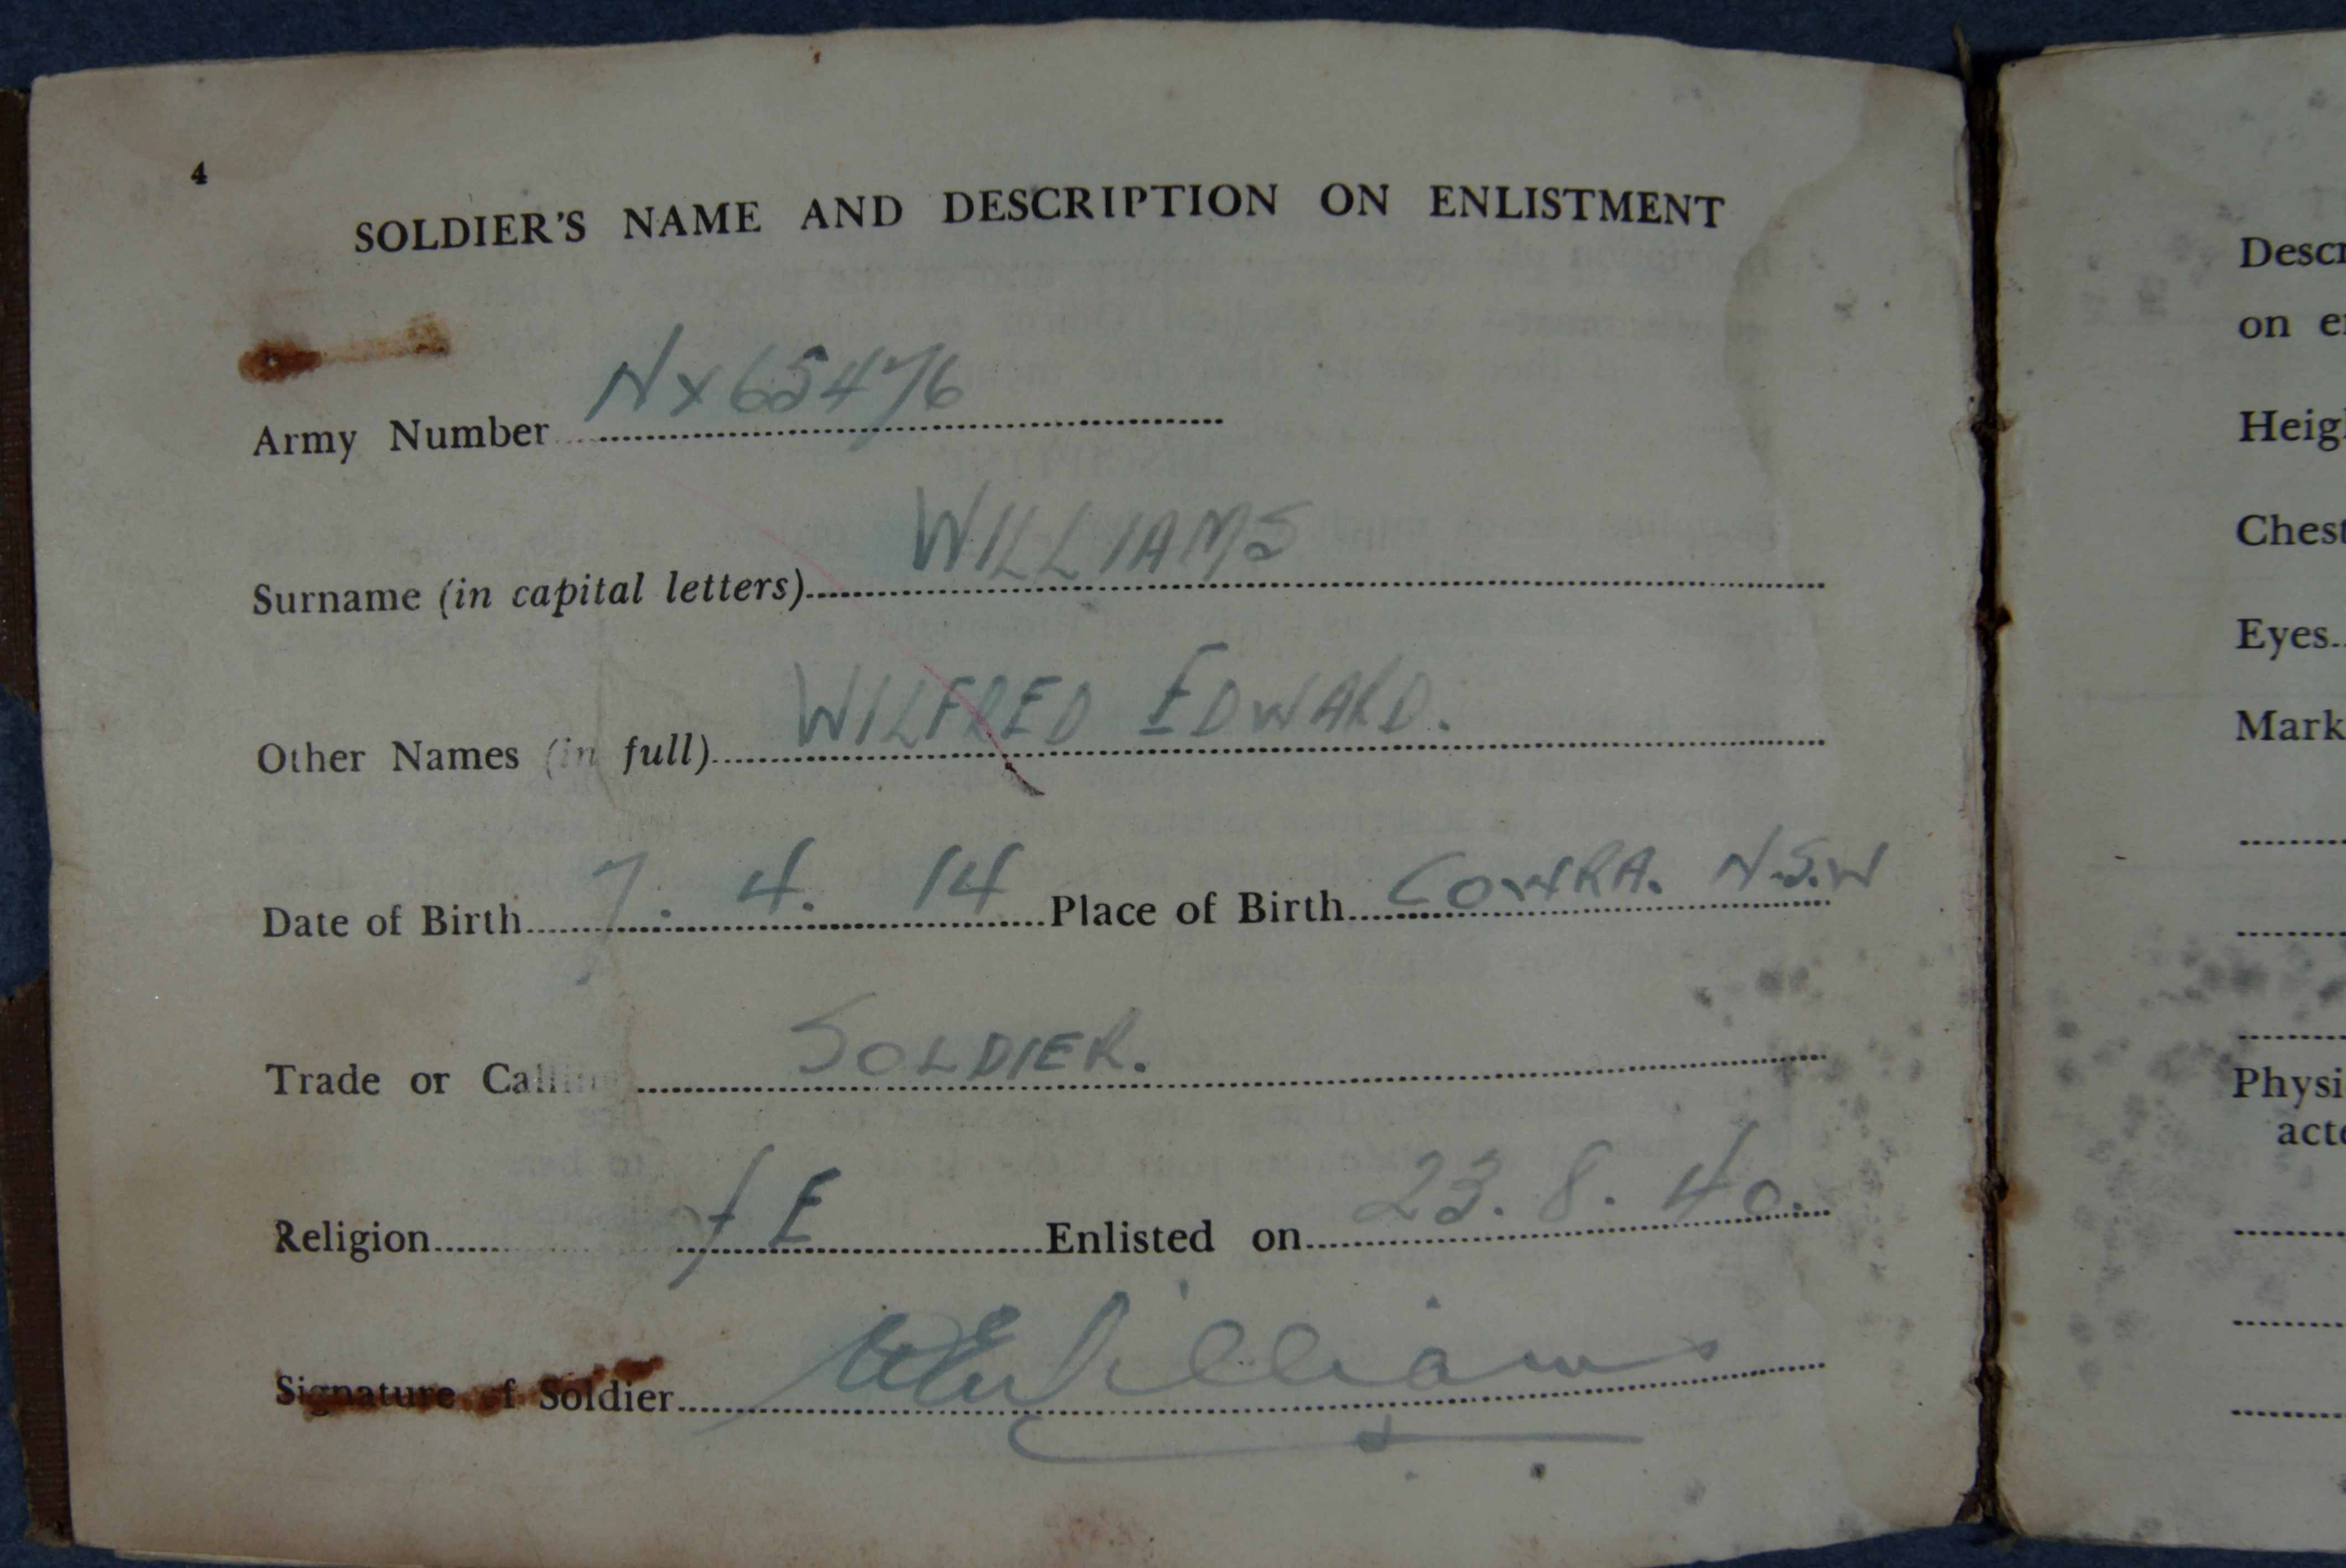 4
SOLDIER'S NAME AND DESCRIPTION ON ENLISTMENT
Army Number NX65476
Surname (in capital letters) WILLIAMS
Other Names (in full) WILFRED EDWARD.
Date of Birth 7. 4. 14 Place of Birth COWRA. N.S.W
Trade or Calling SOLDIER.
Religion f E Enlisted on 23. 8. 40.
Signature of Soldier WEWilliams
Descr
on e
Heig
Chest
Eyes
Mark
Physi
acte